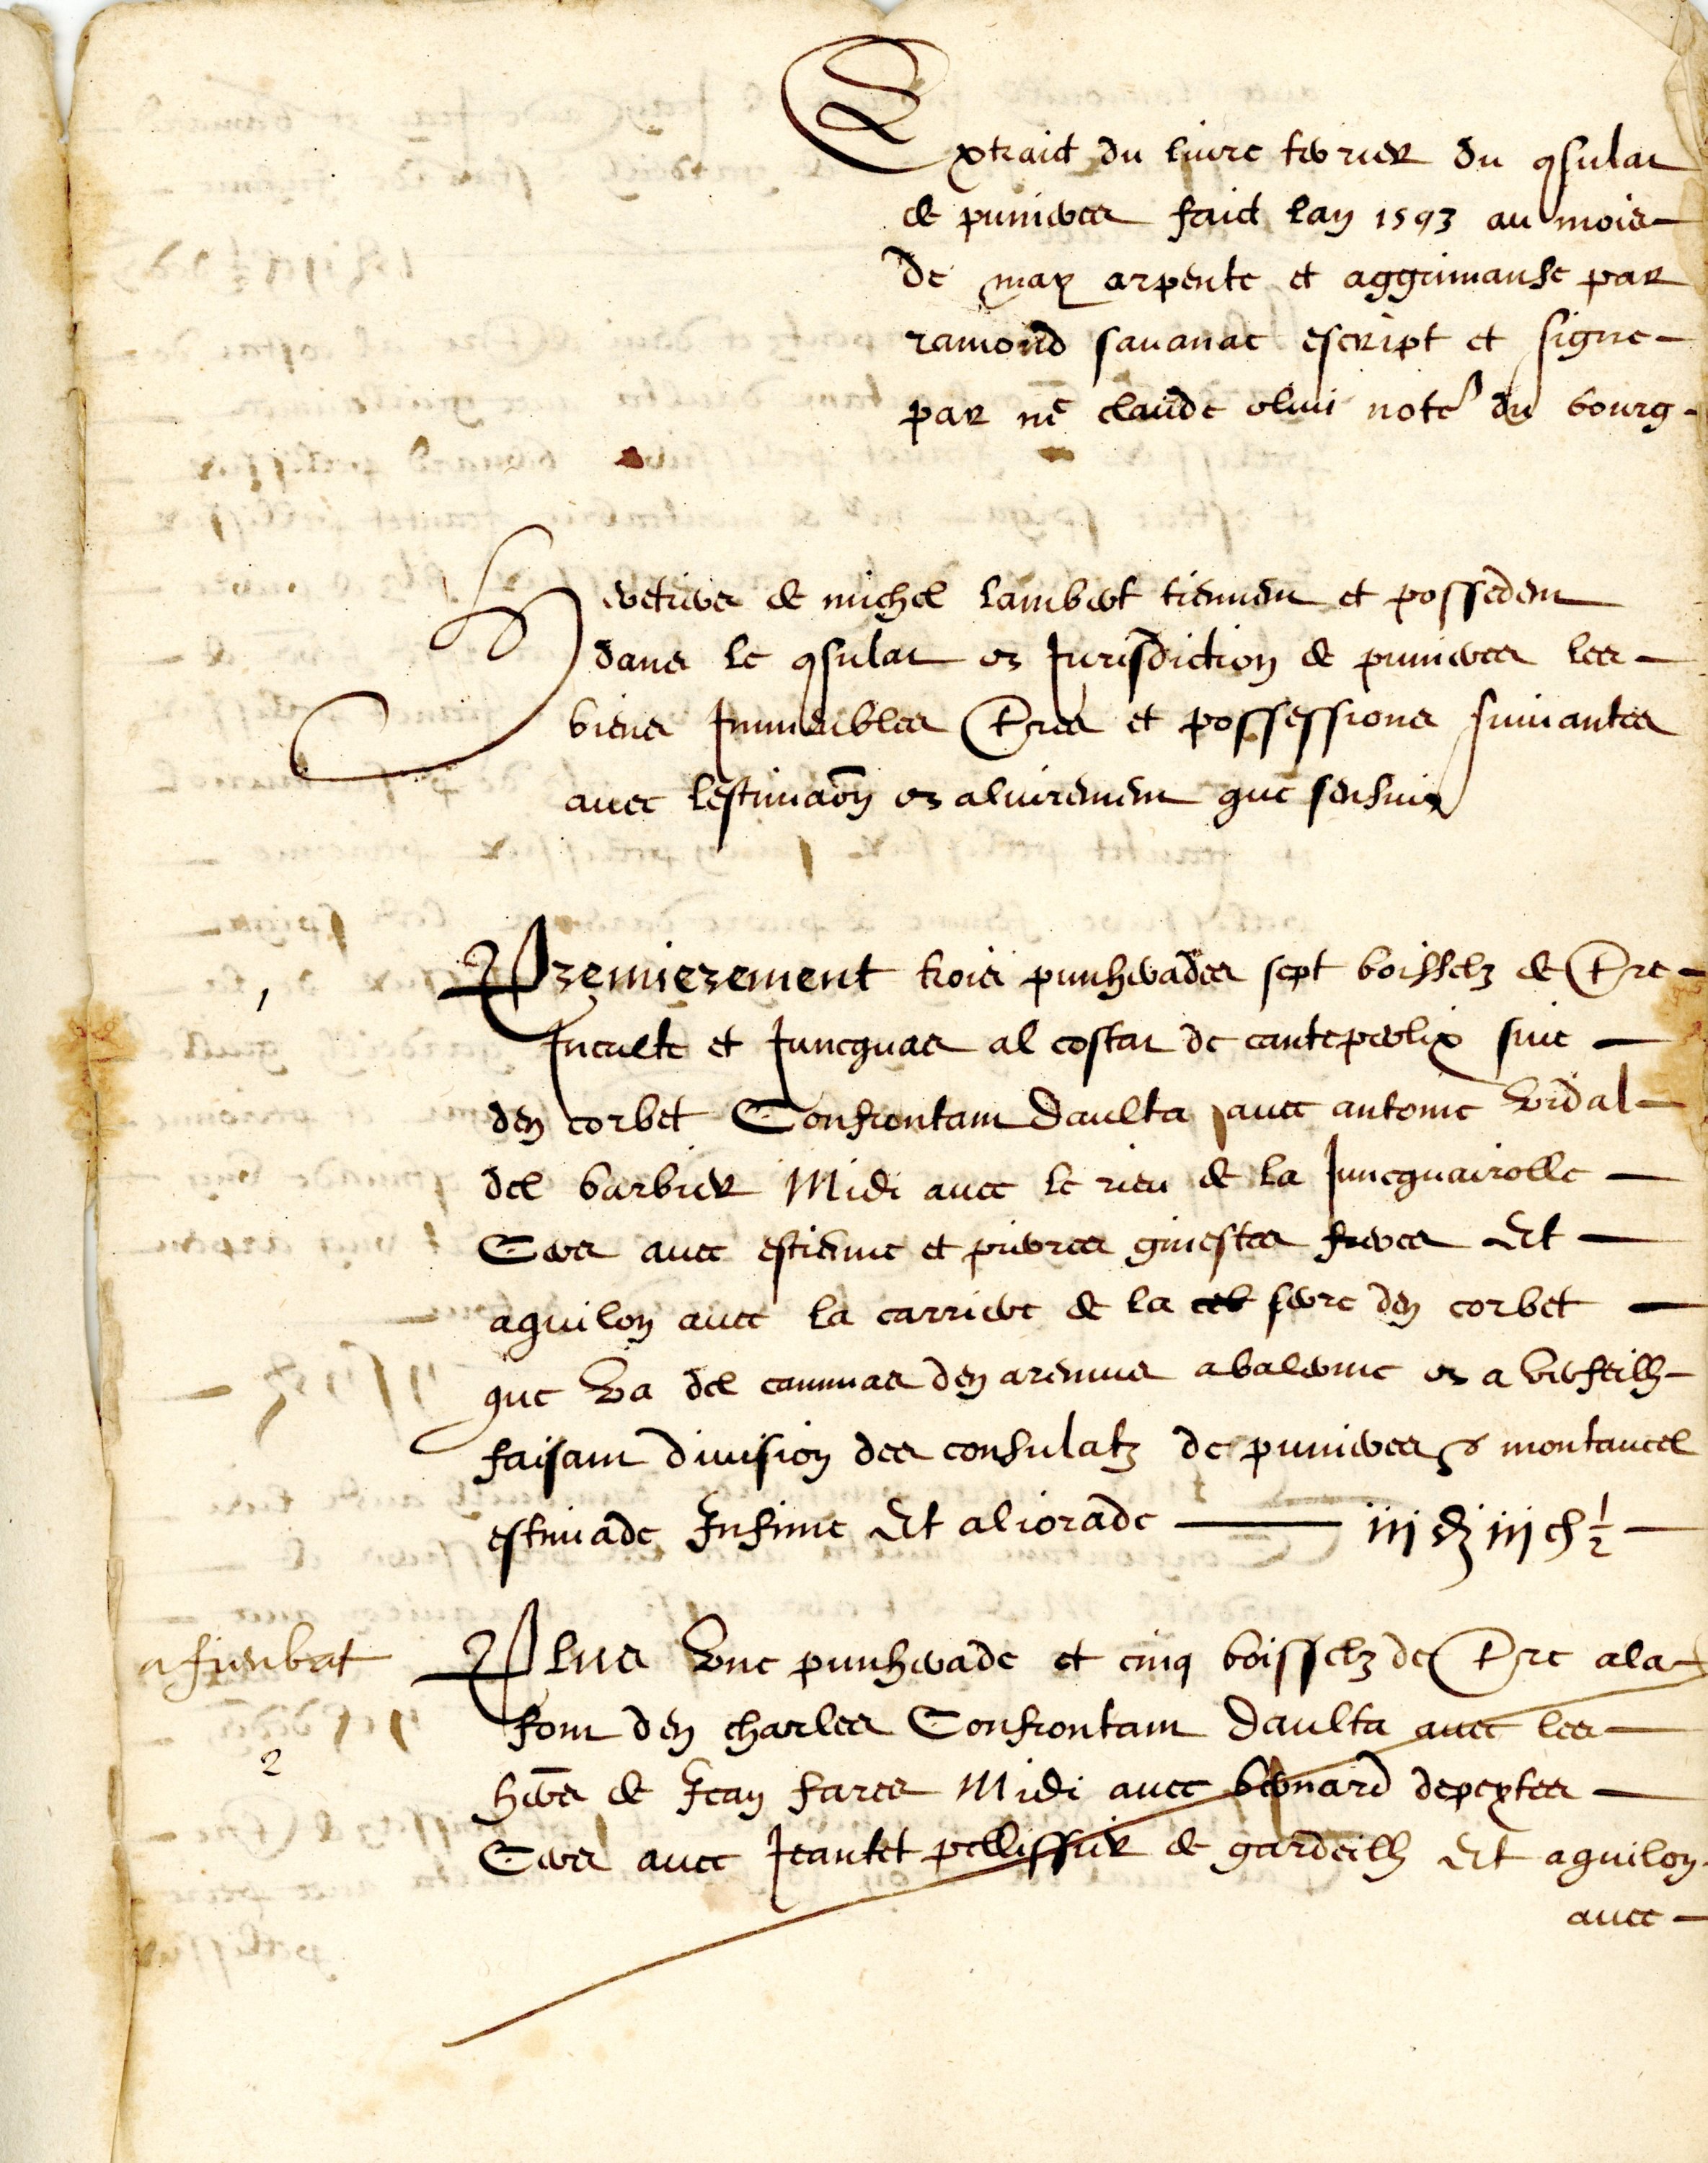 Extraict du livre terrier du qsulat
de punieres faict lan 1593 au mois
de may arpente et aggrimanse par
ramond savanac escript et signe
par me claude olivi note du bourg
Heretiers de michel lambert tiennent et possedent
dans le qsulat et Jurisdiction de punieres les
biens Immeubles Tres et possessions suivantes
avec lestimaon et alivrement que sensuit
1
Premierement trois punherades sept boisselz de Tre
Inculte et Juncquas al costat de canteperlix sive
den corbet Confrontant Daulta avec antoine vidal
del barbier Midi avec le rieu de la Juncquairolle
Cers avec estienne et pierres ginestes freres Et
aguilon avec la carriere de la serre den corbet
que va del cammas den arennes a balerme et a verfeilh
faisant division des consulatz de punieres & montaucel
estimade Infime Et aliorade iii d iii ch ½
afusenbat
2
Plus vne punherade et cinq boisselz de Tre a la
font den charles Confrontant Daulta avec les
hers de Jean fares Midi avec bernard depeytes
Cers avec Jeantet pellissier de gardeilh Et aguilon
avec